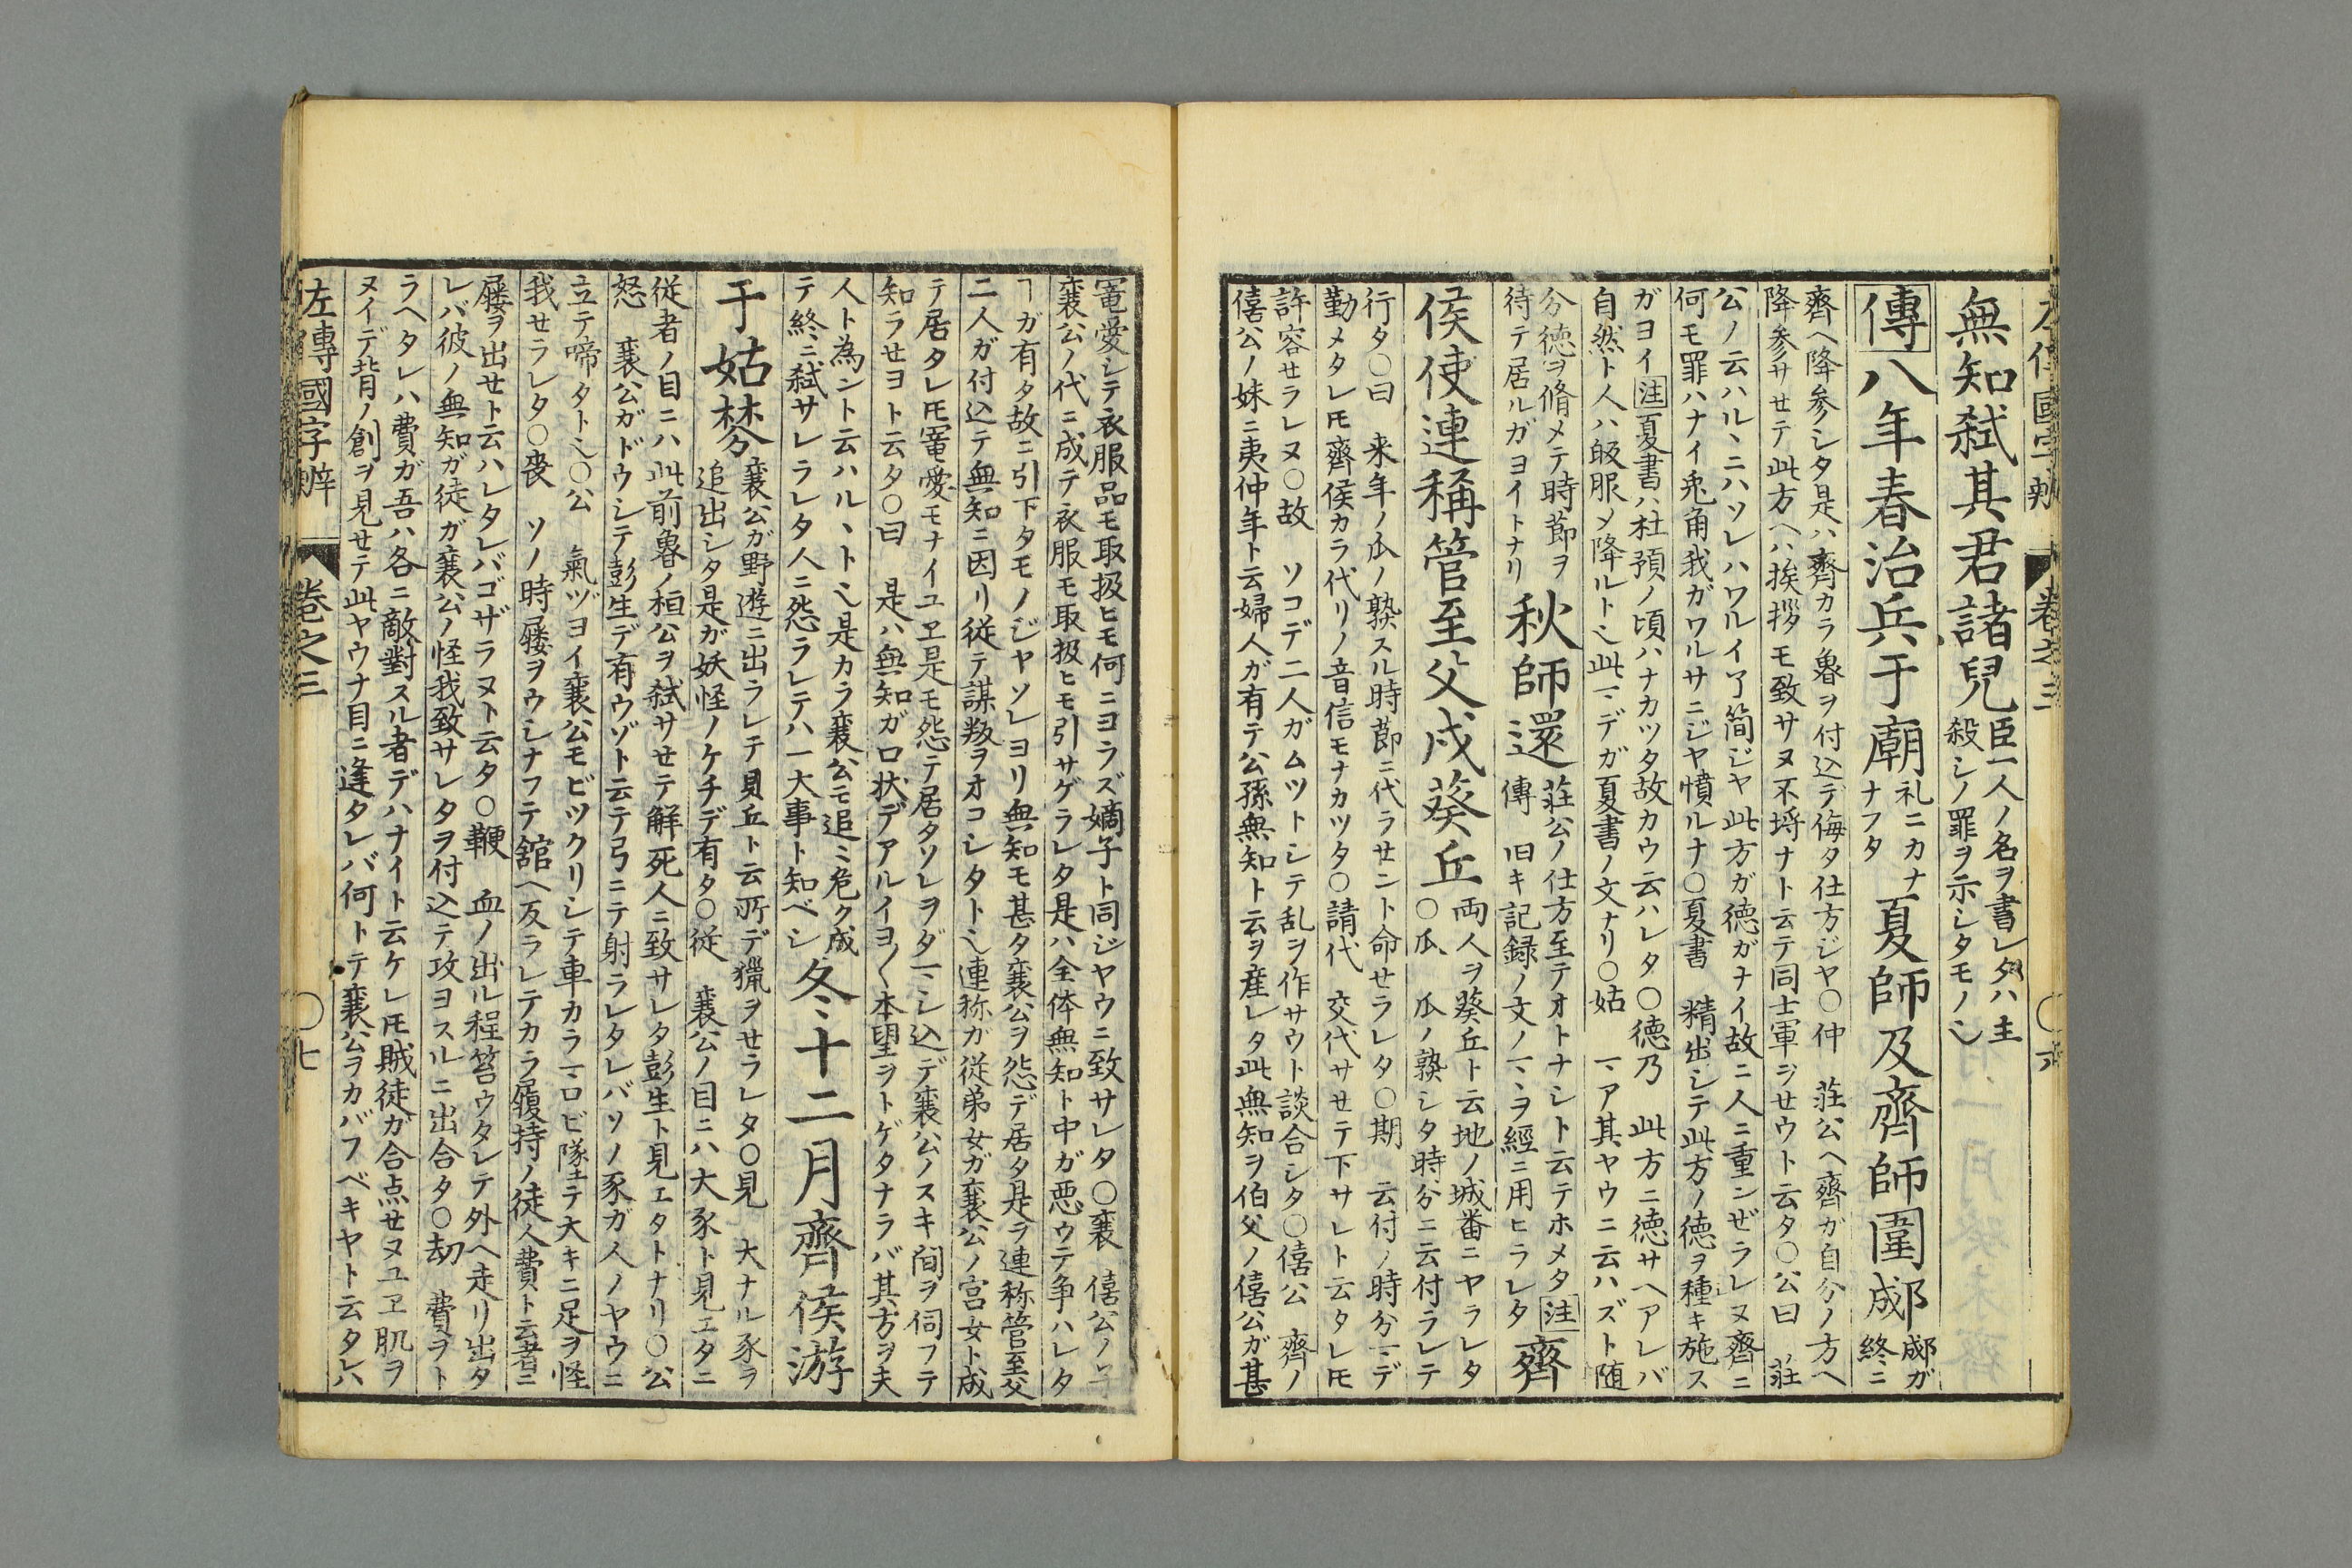 左傳國字辨 卷之三 〇六
無知弑其君諸兒 臣一人ノ名ヲ書レタハ主
殺シノ罪ヲ示シタモノ乄
傳八年春治兵于廟 礼ニカナ
ナフタ 夏師及齊師圍郕 郕ガ
終ニ
齊ヘ降参シタ是ハ齊カラ魯ヲ付込デ侮タ仕方ジヤ〇仲 莊公ヘ齊ガ自分ノ方ヘ
降参サせテ此方ヘハ挨拶モ致サヌ不埒ナト云テ同士軍ヲせウト云タ〇公曰 莊
公ノ云ハルヽニハソレハワルイ了簡ジヤ此方ガ徳ガナイ故ニ人ニ重ンぜラレヌ齊ニ
何モ罪ハナイ兎角我ガワルサニジヤ憤ルナ〇夏書 精出シテ此方ノ徳ヲ種キ施ス
ガヨイ注夏書ハ杜預ノ頃ハナカツタ故カウ云ハレタ〇徳乃 此方ニ徳サヘアレバ
自然ト人ハ皈服メ降ルト乄此マデガ夏書ノ文ナリ〇姑 マア其ヤウニ云ハズト随
分徳ヲ脩メテ時節ヲ
待テ居ルガヨイトナリ 秋師還 莊公ノ仕方至テオトナシト云テホメタ注
傳 旧キ記録ノ文ノマヽヲ經ニ用ヒラレタ 齊
侯使連稱管至父戍葵丘 両人ヲ葵丘ト云地ノ城番ニヤラレタ
〇瓜 瓜ノ熟シタ時分ニ云付ラレテ
行タ〇曰 来年ノ瓜ノ熟スル時節ニ代ラせント命せラレタ〇期 云付ノ時分マデ
勤メタレ𪜈齊侯カラ代リノ音信モナカツタ〇請代 交代サせテ下サレト云タレ𪜈
許容せラレヌ〇故 ソコデ二人ガムツトシテ乱ヲ作サウト談合シタ〇僖公 齊ノ
僖公ノ妹ニ夷仲年ト云婦人ガ有テ公孫無知ト云ヲ産レタ此無知ヲ伯父ノ僖公ガ甚
寵愛シテ衣服品モ取扱ヒモ何ニヨラズ嫡子ト同ジヤウニ致サレタ〇襄 僖公ノ
襄公ノ代ニ成テ衣服モ取扱ヒモ引サゲラレタ是ハ全体無知ト中ガ悪ウテ争ハレタ
ヿガ有タ故ニ引下タモノジヤソレヨリ無知モ甚タ襄公ヲ怨デ居タ是ヲ連称管至父
二人ガ付込テ無知ニ因リ従テ謀叛ヲオコシタト乄連称ガ従弟女ガ襄公ノ宮女ト成
テ居タレ𪜈寵愛モナイユヱ是モ怨テ居タソレヲダマシ込デ襄公ノスキ間ヲ伺フテ
知ラせヨト云タ〇曰 是ハ無知ガ口状デアルイヨ〳〵本望ヲトゲタナラバ其方ヲ夫
人ト為ント云ハルヽト乄是カラ襄公モ追ミ危ク成
テ終ニ弑サレラレタ人ニ怨ラレテハ一大事ト知ベシ 冬十二月齊侯游
于姑棼 襄公ガ野遊ニ出ラレテ貝丘ト云所デ猟ヲせラレタ〇見 大ナル豕ヲ
追出シタ是ガ妖怪ノケチデ有タ〇従 襄公ノ目ニハ大豕ト見エタニ
従者ノ目ニハ此前魯ノ桓公ヲ弑サせテ解死人ニ致サレタ彭生ト見エタトナリ〇公
怒 襄公ガドウシテ彭生デ有ウゾト云テ弓ニテ射ラレタレバソノ豕ガ人ノヤウニ
立テ啼タト乄〇公 氣ヅヨイ襄公モビツクリシテ車カラマロビ隊テ大キニ足ヲ怪
我せラレタ〇喪 ソノ時屨ヲウシナフテ舘ヘ反ラレテカラ履持ノ徒人費ト云者ニ
屨ヲ出せト云ハレタレバゴザラヌト云タ〇鞭 血ノ出ル程笞ウタレテ外ヘ走リ出タ
レバ彼ノ無知ガ徒ガ襄公ノ怪我致サレタヲ付込テ攻ヨスルニ出合タ〇刧 費ヲト
ラヘタレハ費ガ吾ハ各ニ敵對スル者デハナイト云ケレ𪜈賊徒ガ合点せヌユヱ肌ヲ
ヌイデ背ノ創ヲ見せテ此ヤウナ目ニ逢タレバ何トテ襄公ヲカバフベキヤト云タレハ
左傳國字辨 卷之三 〇七